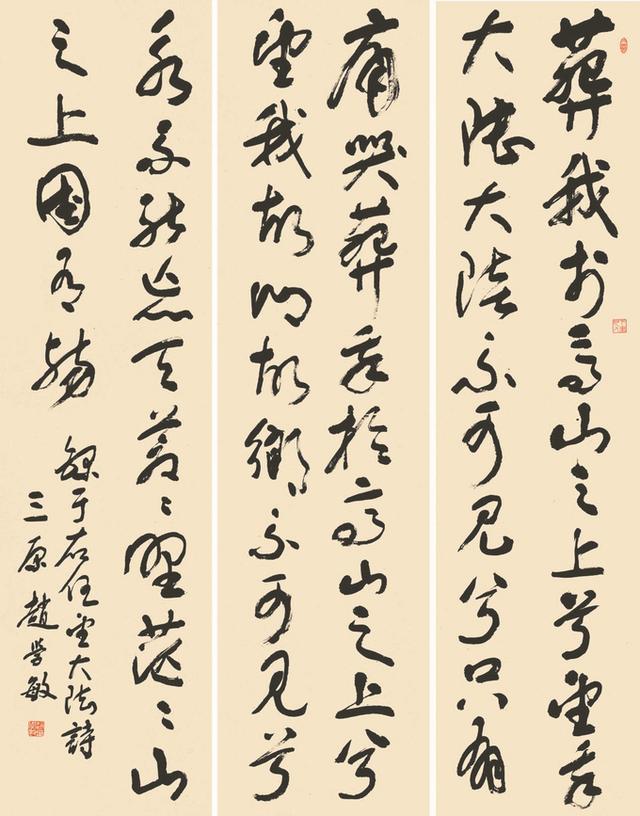 葬我於高山之上兮望我
大陸大陸不可見兮只有
痛哭葬我於高山之上兮
望我故鄉故鄉不可見兮
永不能忘天蒼〻野茫〻山
之上國有殤
錄于右任望大陸詩
三原趙學敏